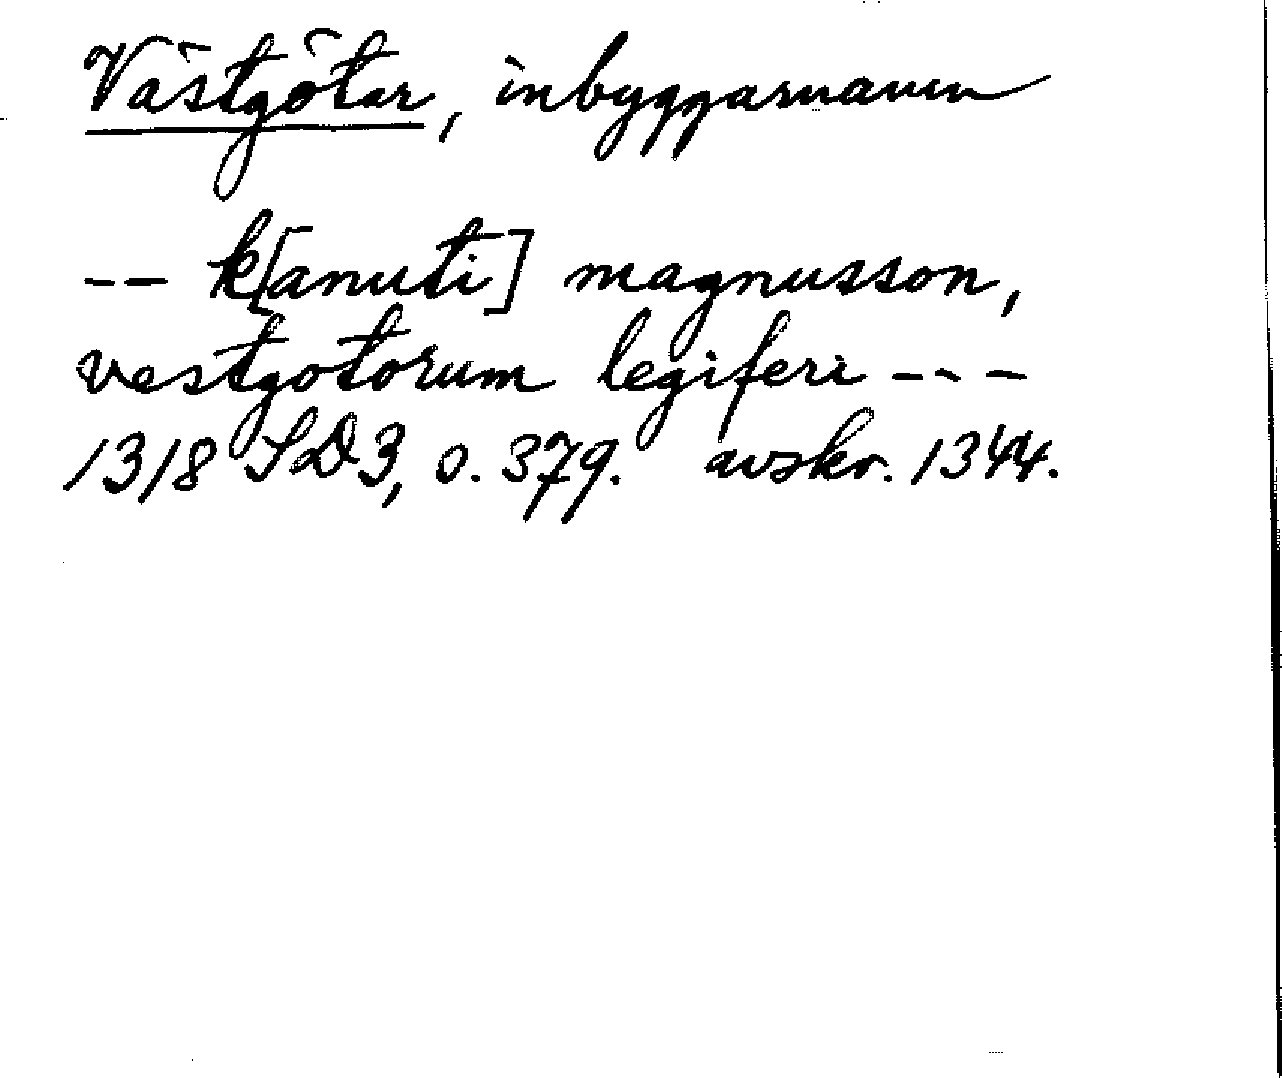 Västgötar, inbyggarnamn
-- k[anuti] magnusson,
vestgotorum legiferi ---
1318 SD 3, s. 379. avskr. 1344.